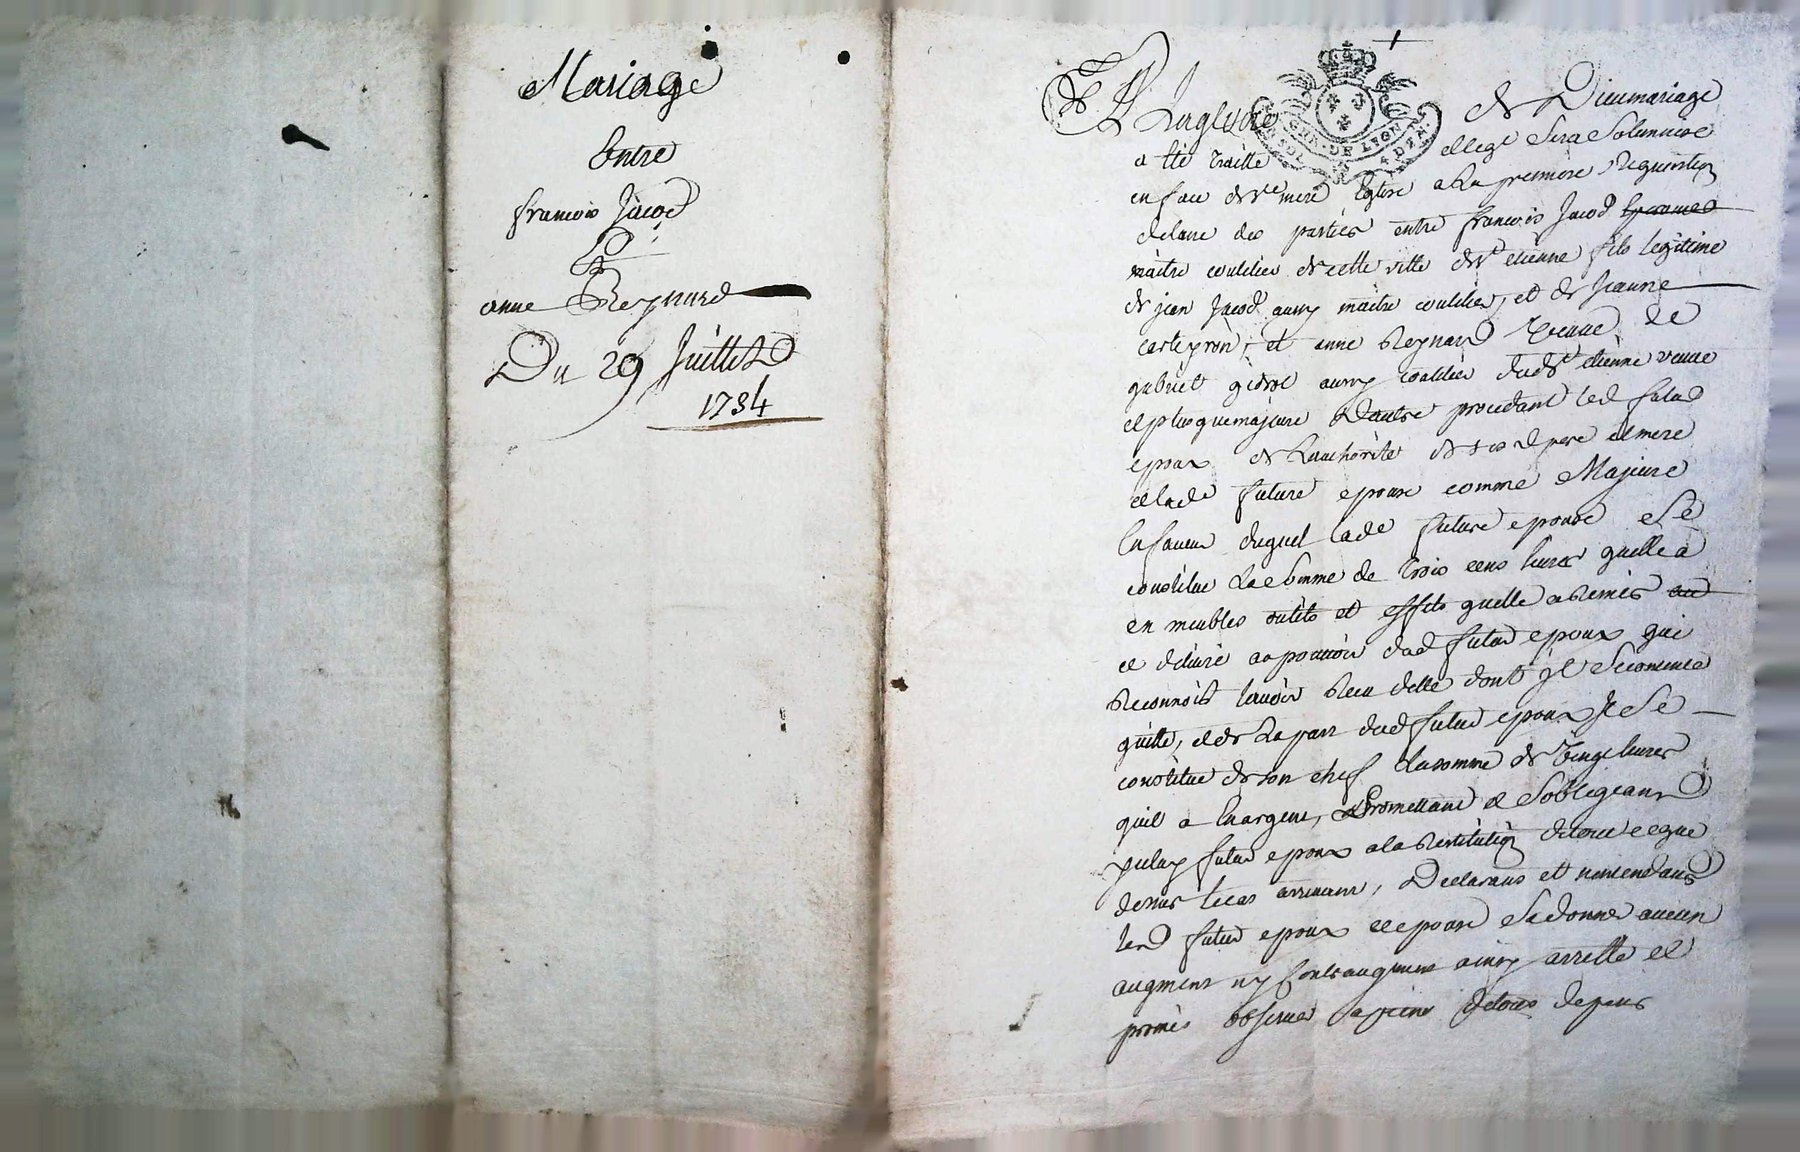 Mariage
Entre
françois Jacod
Et
anne Reynard
Du 29 Juillet
1734
GEN. DE LYON
A La gloire de Dieu mariage
a été traitté et lequel sera solemnisé
en face de ste mere Eglise a la premiere requisition
de lune des parties entre francois Jacod
maitre coutelier de cette ville de st etienne fils legitime
de jean Jacod aussy maitre coutelier, et de Jeanne
et anne Reynard veuve de
gabriel aussy coutelier dud st etienne veuve
et plus que majeure Dautre procedant led futur
epoux de Lauthorité de sesd pere et mere
et lade future epouse comme Majeure
En faveur duquel lade future epouse se
constitue La somme de trois cens livres quelle a
en meubles outils et effets quelle a Remis au
et délivré au pouvoir dud futur epoux qui
Reconnoit lavoir Receu delle dont il se contente
quitte, et de La part dud futur epoux Il se
constitue de son chef La somme de Vingt livres
quil a En argent, Promettant et Sobligeant
futur epoux a la Restitution de tout ce que
dessus le cas arrivant, Declarant et nentendant
lesd futur epoux et epouse Se donner aucun
augment ny Contraugment ainsy arretté et
promis observer a peine de tous depens